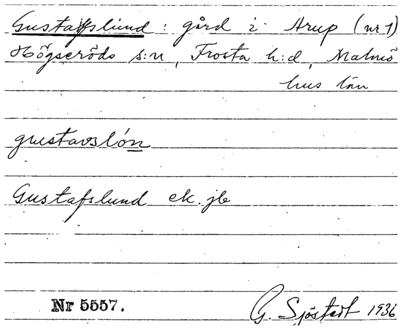 Gustafslund : gård i Arup (nr 1)
Högseröds s:n, Frosta h:d, Malmö
hus län
gustavslón
Gustafslund ek. jb
Nr 5557.
G. Sjöstedt 1936